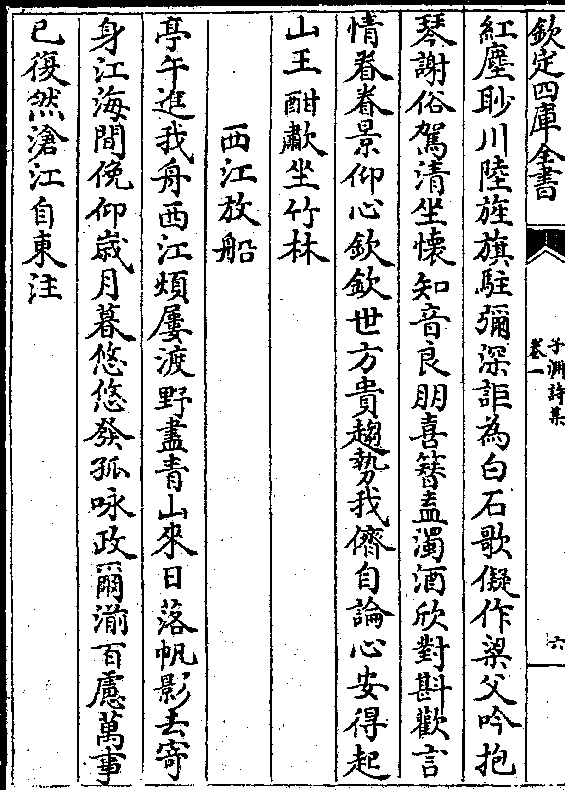 欽定四庫全書
子淵詩集
卷一
六
紅塵眇川陸旌旗駐彌深詎為白石歌儗作梁父吟抱
琴謝俗駕清坐懷知音良朋喜簪盍濁酒欣對斟歡言
情眷眷景仰心欽欽世方貴趨勢我儕自論心安得起
山王酣歗坐竹林
西江放船
亭午進我舟西江煩屢渡野盡青山來日落帆影去寄
身江海間俛仰歳月暮悠悠發孤咏政爾湔百慮萬事
已復然滄江自東注